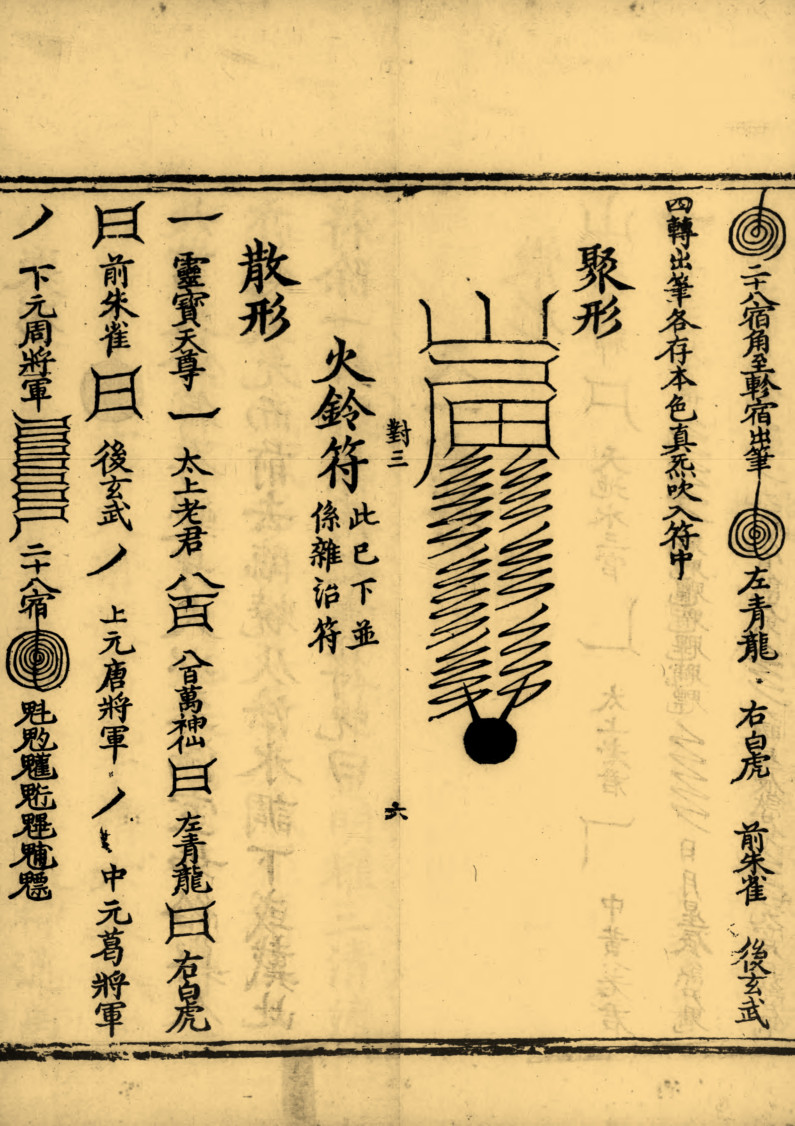 二十八宿角至軫宿出筆 左青龍 右白虎 前朱雀 後玄武
四轉出筆各存本色真炁吹入符中
聚形
對三
六
火鈴符 此已下並係雜治符
散形
一 靈寶天尊 一 太上老君 八百 八百萬神仙 曰 左青龍 曰 右白虎
曰 前朱雀 曰 後玄武 丿 上元唐將軍 丿 中元葛將軍
丿 下元周將軍 二十八宿 魁䰢䰡魓